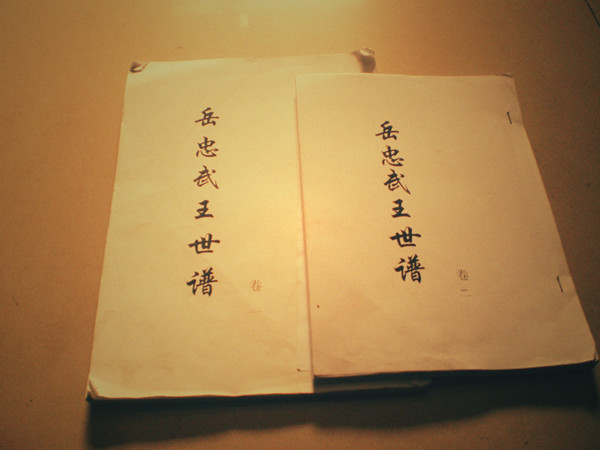 岳忠武王世谱
卷一
岳忠武王世谱
卷二